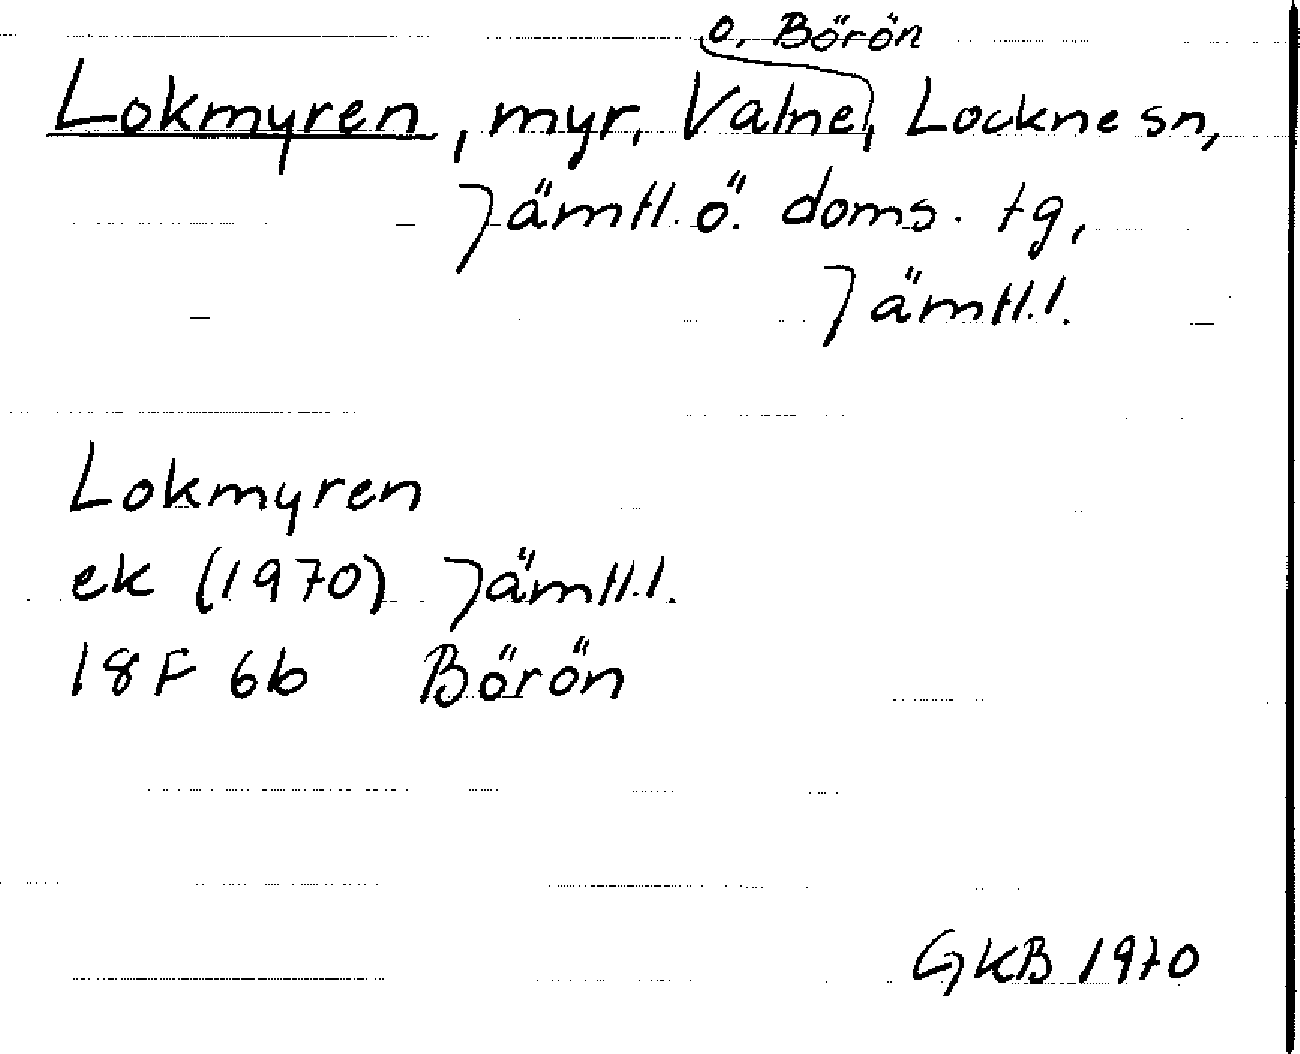 o. Börön
Lokmyren, myr, Valne, Lockne sn,
Jämtl. ö. doms. tg,
Jämtl.l.
Lokmyren
ek (1970) Jämtl.l.
18 F 6b Börön
GKB 1970